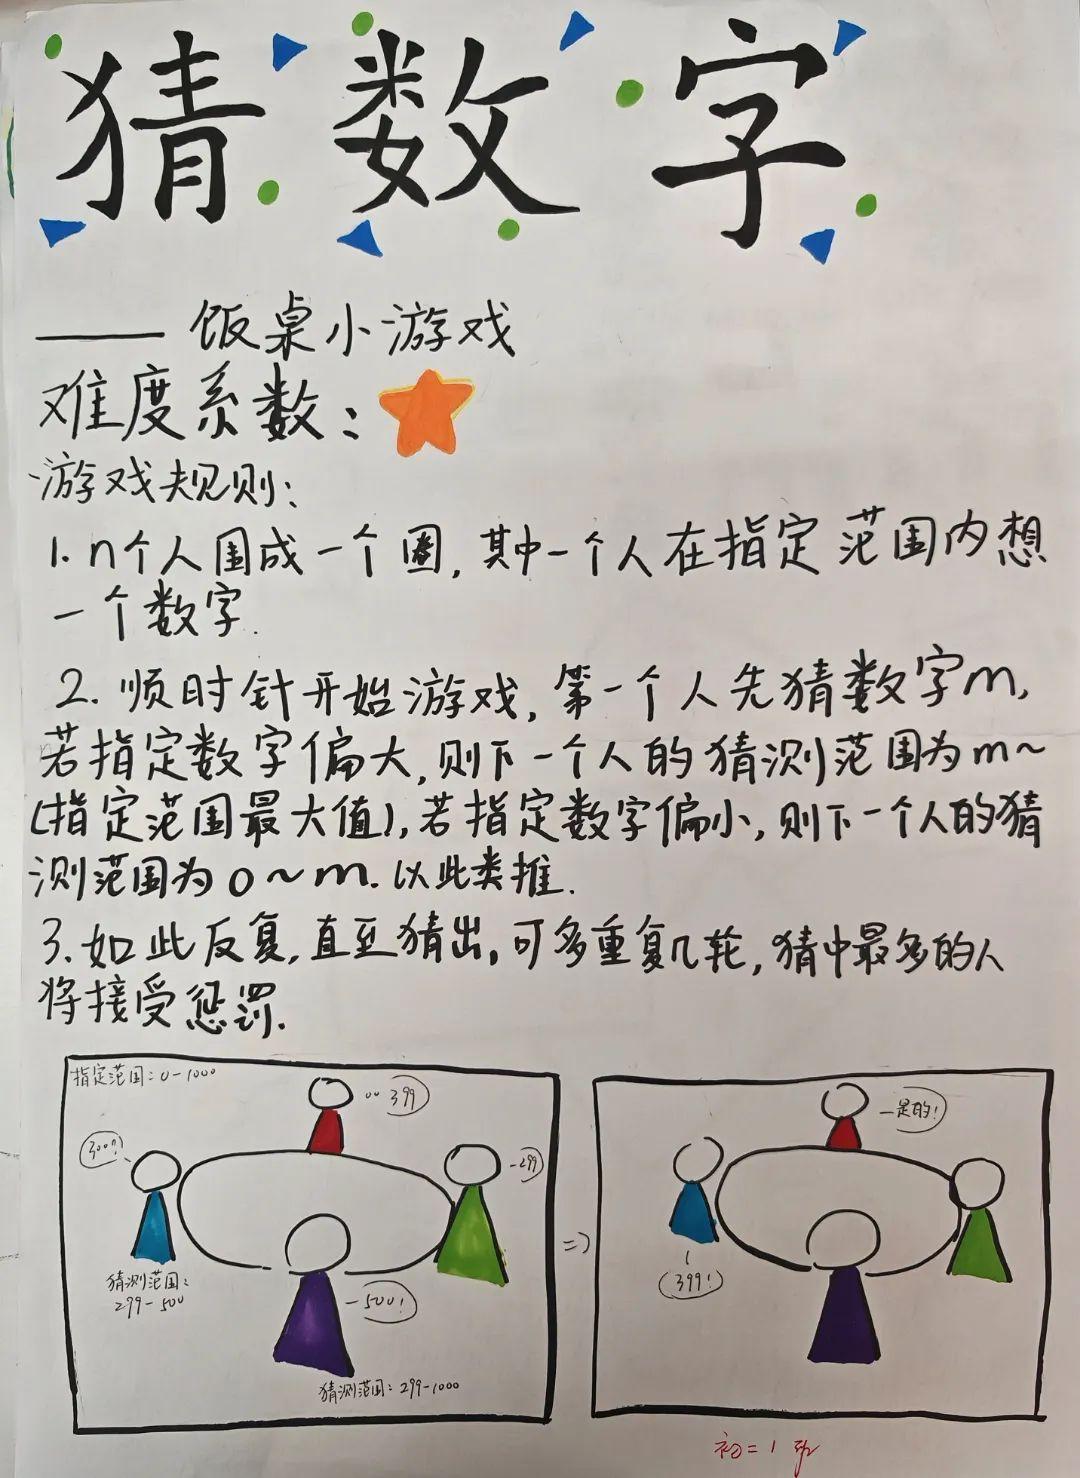 猜数字
—— 饭桌小游戏
难度系数：
游戏规则：
1. n个人围成一个圈，其中一个人在指定范围内想
一个数字.
2. 顺时针开始游戏，第一个人先猜数字m，
若指定数字偏大，则下一个人的猜测范围为m～
(指定范围最大值)，若指定数字偏小，则下一个人的猜
测范围为0～m. 以此类推.
3. 如此反复，直至猜出，可多重复几轮，猜中最多的人
将接受惩罚.
指定范围：0-1000
399
300!
-299
猜测范围：
299-500
-500!
猜测范围：299-1000
=>
一是的!
399!
初二1班